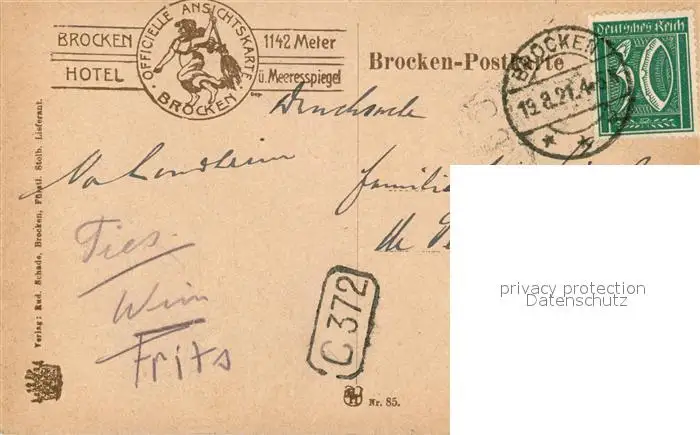 BROCKEN
HOTEL
OFFICIELLE ANSICHTSKARTE
BROCKEN
1142 Meter
ü. Meeresspiegel
Brocken-Postkarte
BROCKEN
19.8.21.4-
Deutsches Reich
10
Drucksache
familie
de
Ties.
Wim
Frits
C 372
Verlag: Rud. Schade, Brocken, Fürstl. Stolb. Lieferant.
Nr. 85.
privacy protection
Datenschutz